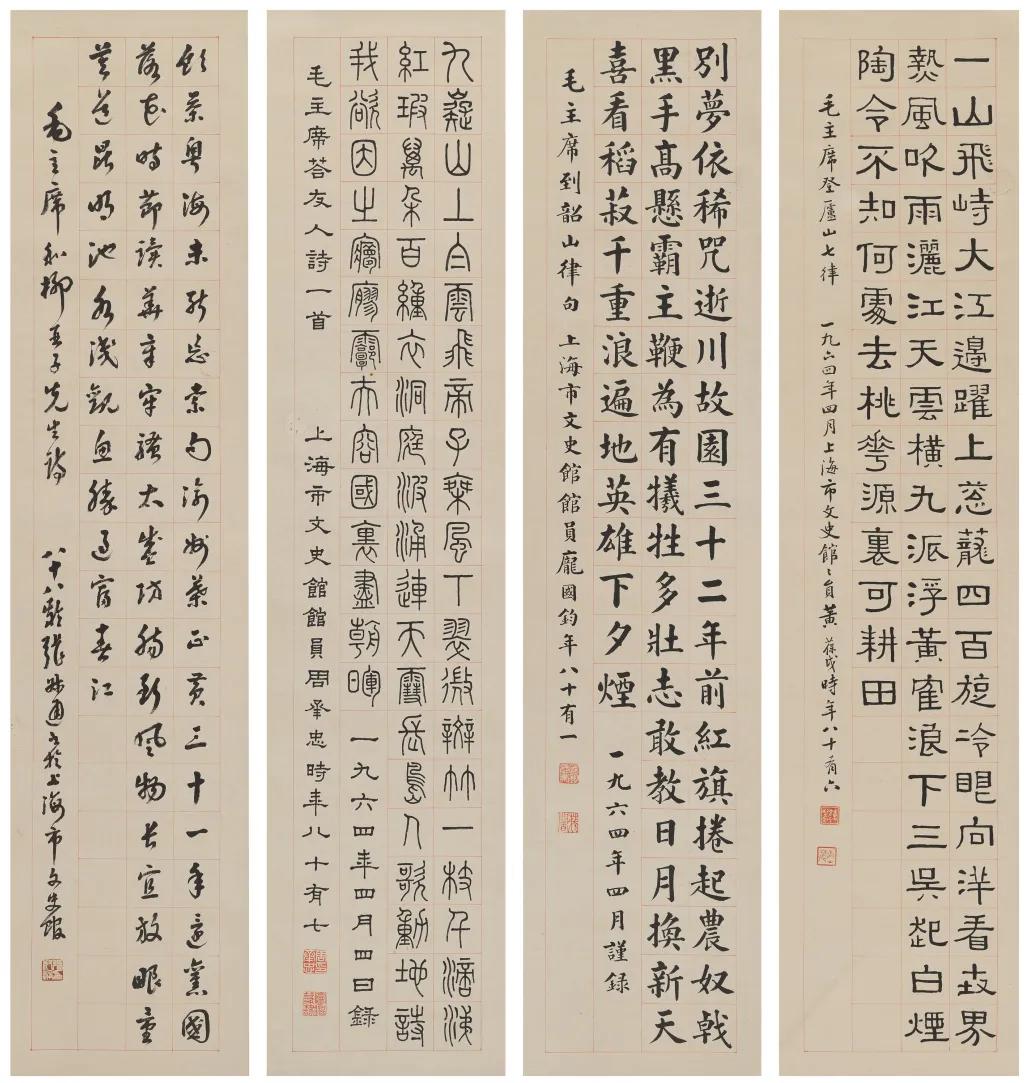 一山飛峙大江邊躍上蔥蘢四百旋冷眼向洋看世界
熱風吹雨灑江天雲橫九派浮黃隺浪下三吳起白煙
陶令不知何處去桃花源裏可耕田
毛主席登廬山七律 一九六四年四月上海市文史館〻員黃葆戉時年八十有六
別夢依稀咒逝川故園三十二年前紅旗捲起農奴戟
黑手高懸霸主鞭為有犧牲多壯志敢教日月換新天
喜看稻菽千重浪遍地英雄下夕煙 一九六四年四月謹錄
毛主席到韶山律句 上海市文史館館員龐國鈞年八十有一
九嶷山上白雲飛帝子椉風下翠微辬竹一枝千滴淚
紅瑕萬朵百緟衣洞庭波涌連天雪長島人歌動地詩
我欲因之㝱廫霩夫容國裏盡朝暉 一九六四年四月四日錄
毛主席荅友人詩一首 上海市文史館館員周承忠時年八十有七
飲茶粵海未能忘索句渝州葉正黃三十一年還舊國
落花時節讀華章牢騷太盛防腸斷風物長宜放眼量
莫道昆明池水淺觀魚勝過富春江
毛主席和柳亞子先生詩 八十八歲張叔通書於上海市文史館